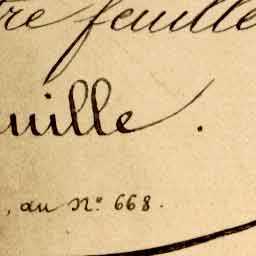 tre feuille
uille.
, au N° 668.